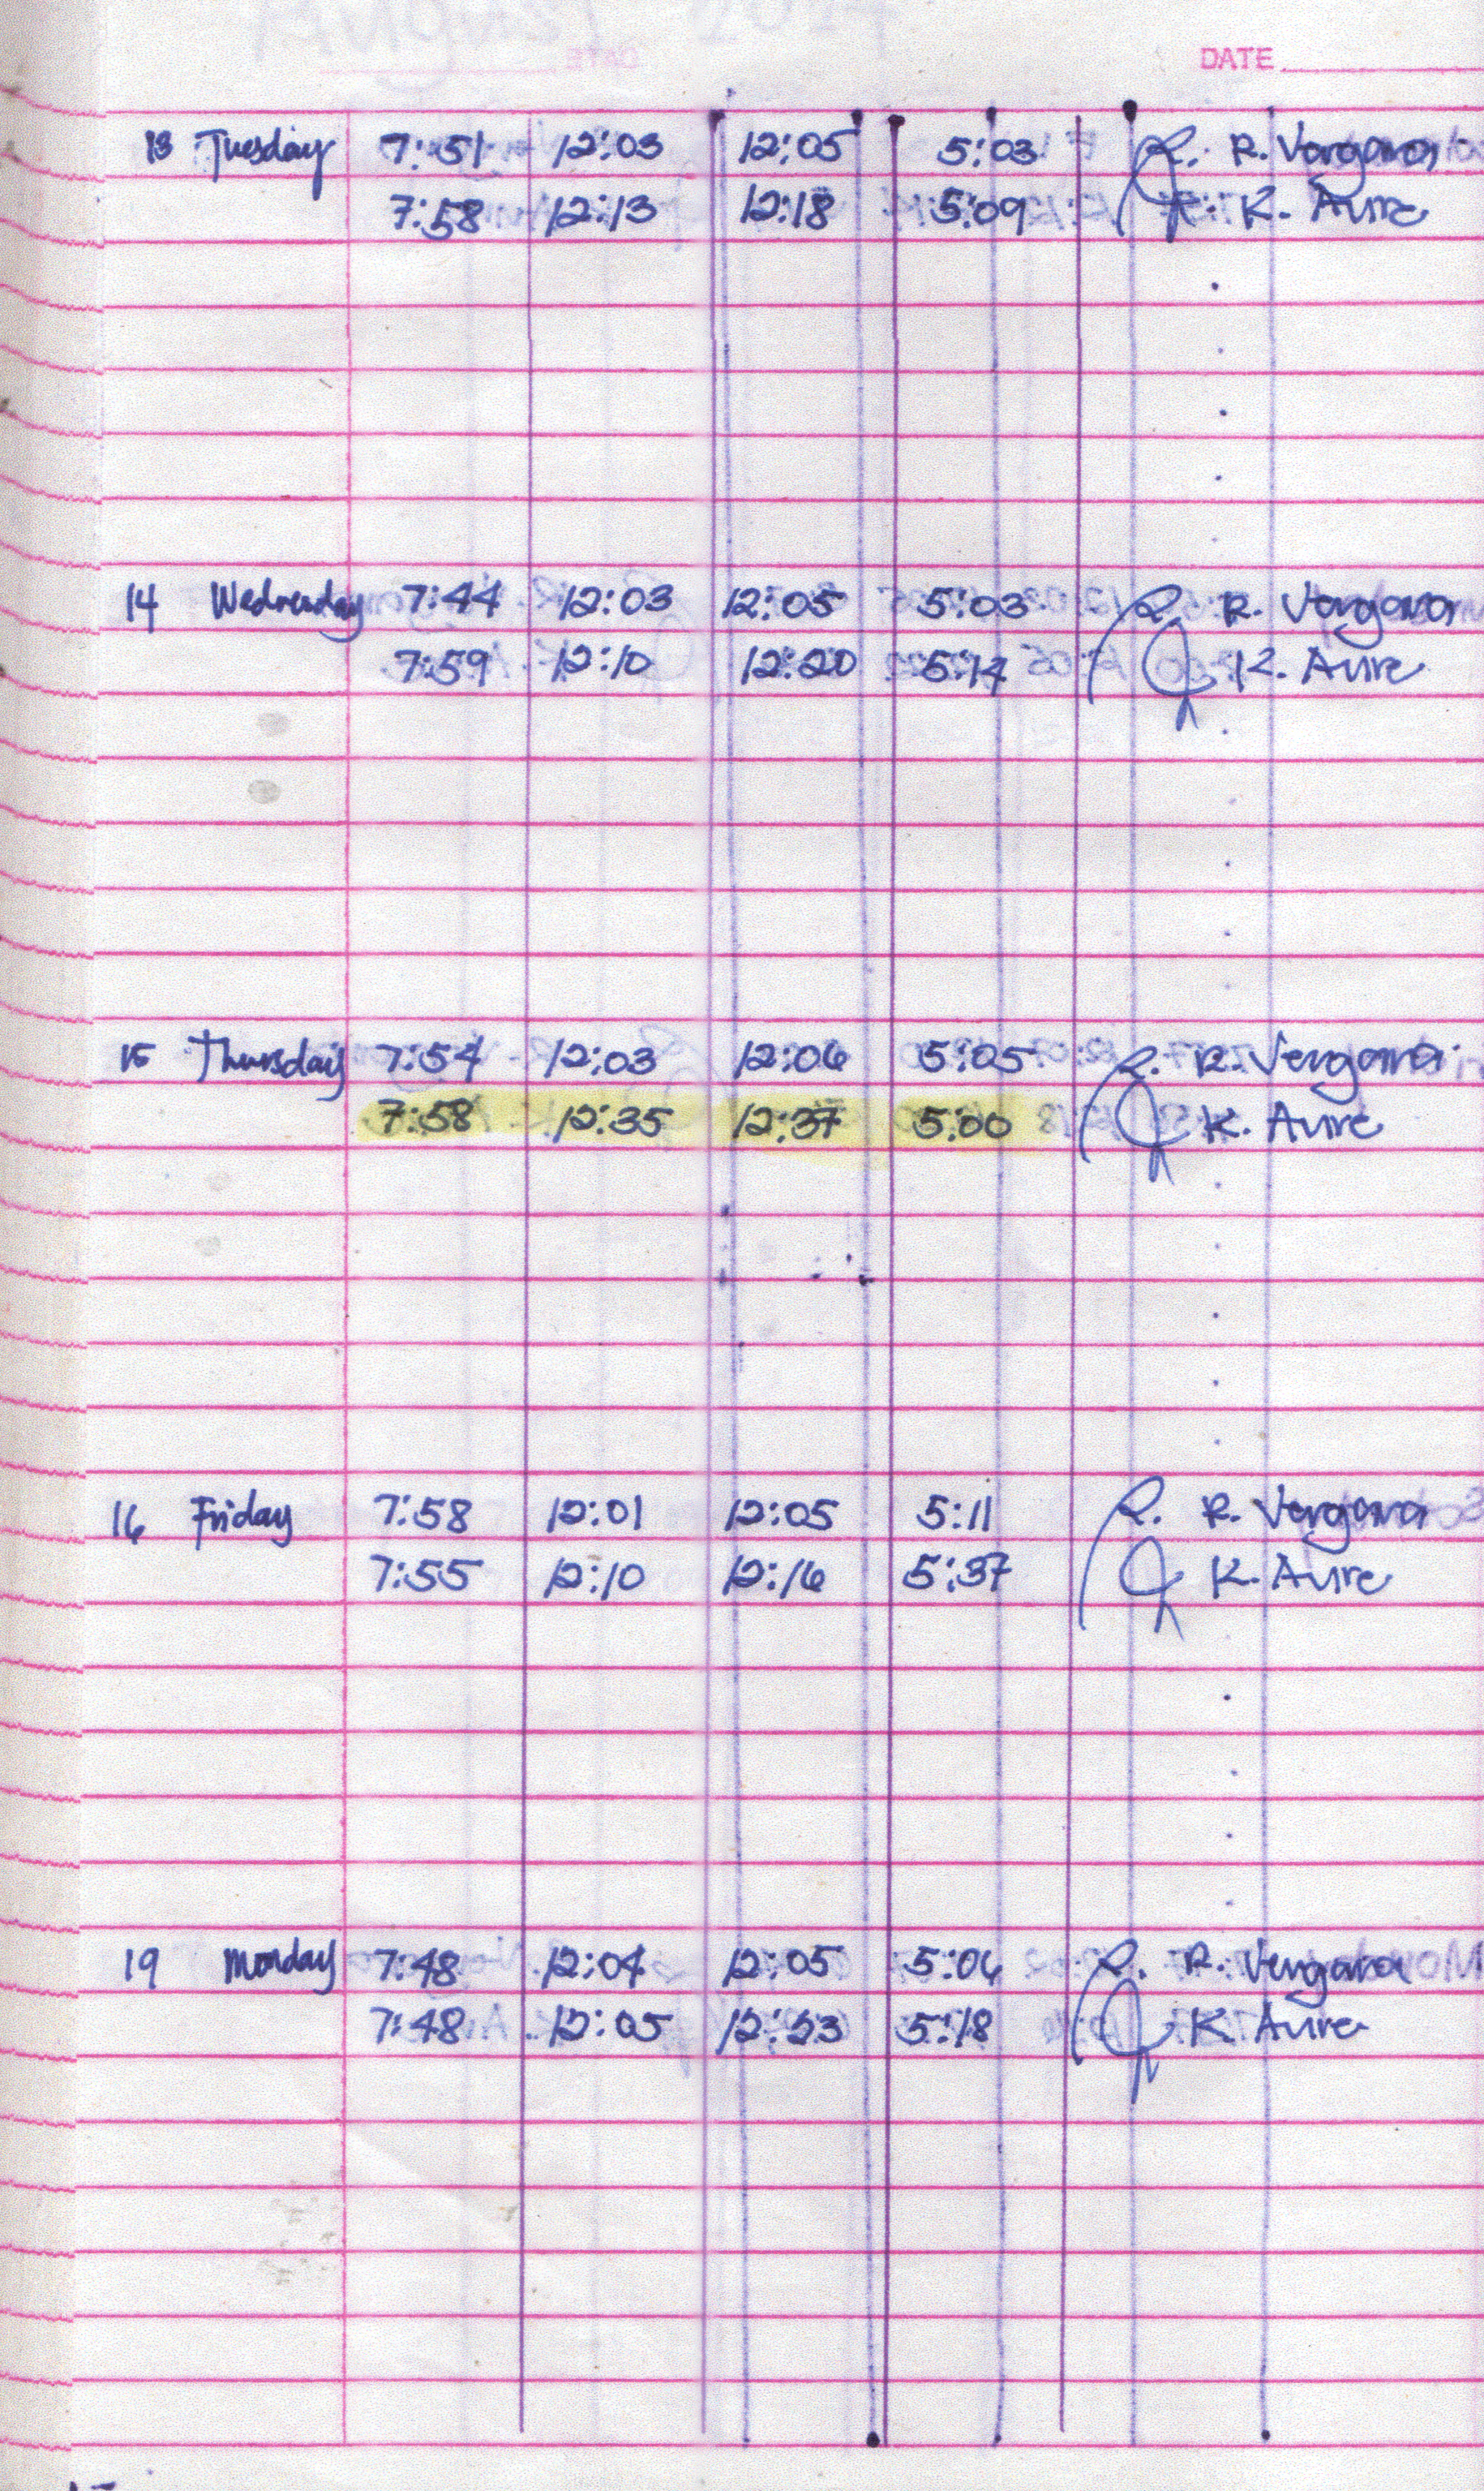 DATE
13 Tuesday 7:51 12:03 12:05 5:03 R. R. Vergara
7:58 12:13 12:18 5:09 K. Avire
14 Wednesday 7:44 12:03 12:05 5:03 R. R. Vergara
7:59 12:10 12:20 5:14 K. Avire
15 Thursday 7:54 12:03 12:06 5:05 R. R. Vergara
7:58 12:35 12:37 5:00 K. Avire
16 Friday 7:58 12:01 12:05 5:11 R. R. Vergara
7:55 12:10 12:16 5:37 K. Avire
19 Monday 7:48 12:04 12:05 5:06 R. R. Vergara
7:48 12:05 12:23 5:18 K. Avire